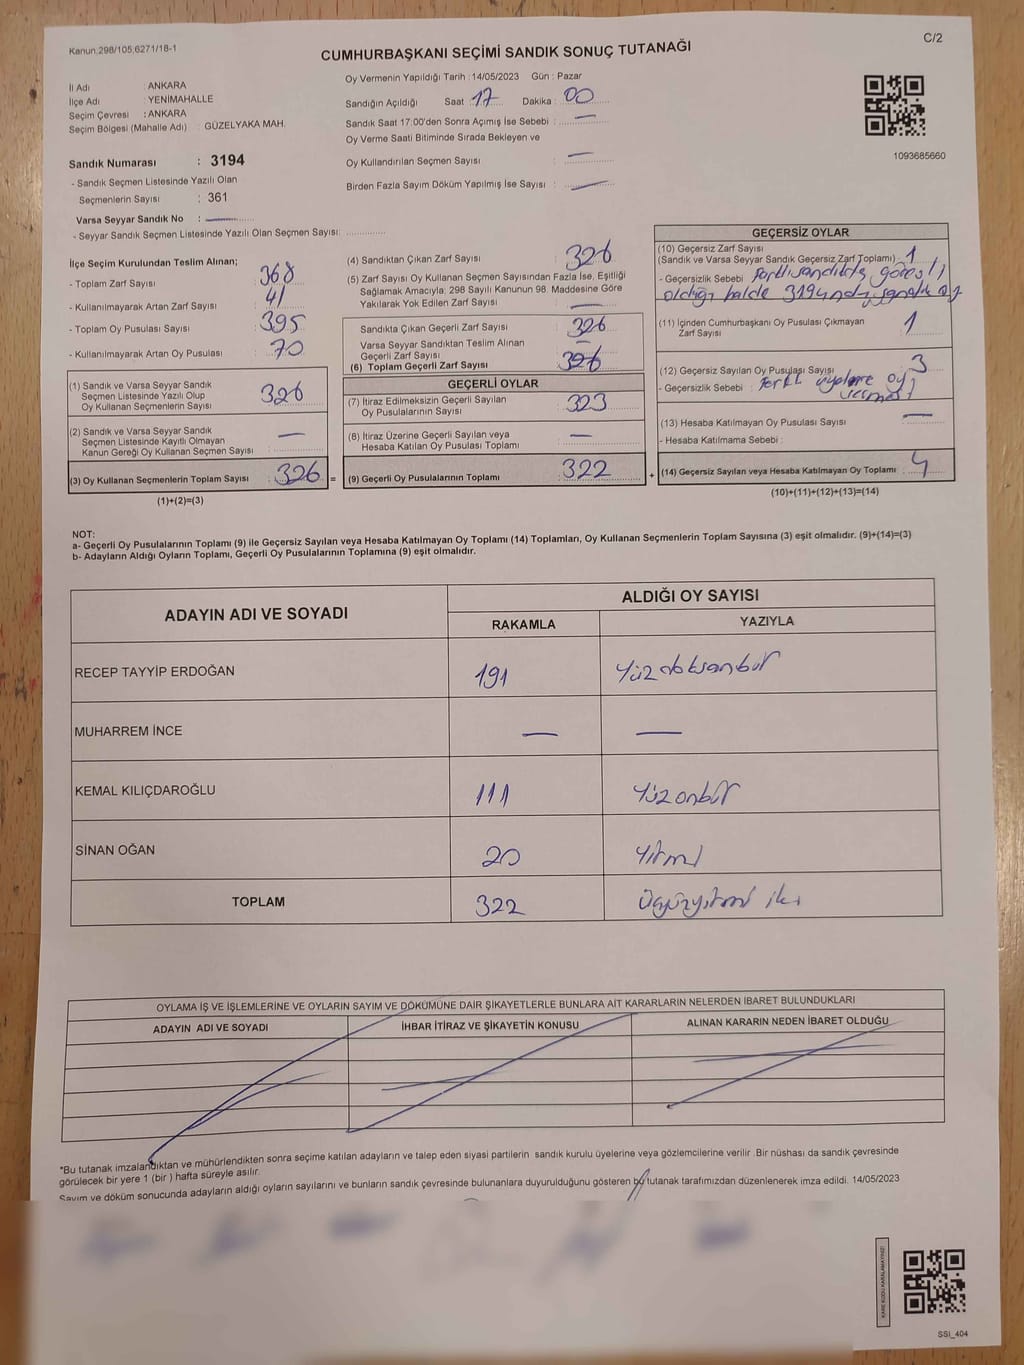 Kanun.298/105,6271/18-1
C/2
CUMHURBAŞKANI SEÇİMİ SANDIK SONUÇ TUTANAĞI
İl Adı : ANKARA
İlçe Adı : YENİMAHALLE
Seçim Çevresi : ANKARA
Seçim Bölgesi (Mahalle Adı) : GÜZELYAKA MAH.
Sandık Numarası : 3194
- Sandık Seçmen Listesinde Yazılı Olan
Seçmenlerin Sayısı : 361
Varsa Seyyar Sandık No : —
- Seyyar Sandık Seçmen Listesinde Yazılı Olan Seçmen Sayısı:
Oy Vermenin Yapıldığı Tarih : 14/05/2023 Gün : Pazar
Sandığın Açıldığı Saat : 17 Dakika : 00
Sandık Saat 17:00'den Sonra Açımış İse Sebebi : —
Oy Verme Saati Bitiminde Sırada Bekleyen ve
Oy Kullandırılan Seçmen Sayısı : —
Birden Fazla Sayım Döküm Yapılmış İse Sayısı : —
1093685660
İlçe Seçim Kurulundan Teslim Alınan;
- Toplam Zarf Sayısı : 368
- Kullanılmayarak Artan Zarf Sayısı : 41
- Toplam Oy Pusulası Sayısı : 395
- Kullanılmayarak Artan Oy Pusulası : 70
(1) Sandık ve Varsa Seyyar Sandık
Seçmen Listesinde Yazılı Olup
Oy Kullanan Seçmenlerin Sayısı : 326
(2) Sandık ve Varsa Seyyar Sandık
Seçmen Listesinde Kayıtlı Olmayan
Kanun Gereği Oy Kullanan Seçmen Sayısı : —
(3) Oy Kullanan Seçmenlerin Toplam Sayısı : 326 =
(1)+(2)=(3)
(4) Sandıktan Çıkan Zarf Sayısı : 326
(5) Zarf Sayısı Oy Kullanan Seçmen Sayısından Fazla İse, Eşitliği
Sağlamak Amacıyla; 298 Sayılı Kanunun 98. Maddesine Göre
Yakılarak Yok Edilen Zarf Sayısı : —
Sandıkta Çıkan Geçerli Zarf Sayısı : 326
Varsa Seyyar Sandıktan Teslim Alınan
Geçerli Zarf Sayısı : —
(6) Toplam Geçerli Zarf Sayısı : 326
GEÇERLİ OYLAR
(7) İtiraz Edilmeksizin Geçerli Sayılan
Oy Pusulalarının Sayısı : 323
(8) İtiraz Üzerine Geçerli Sayılan veya
Hesaba Katılan Oy Pusulası Toplamı : —
(9) Geçerli Oy Pusulalarının Toplamı : 322 +
GEÇERSİZ OYLAR
(10) Geçersiz Zarf Sayısı
(Sandık ve Varsa Seyyar Sandık Geçersiz Zarf Toplamı) : 1
- Geçersizlik Sebebi : farklı sandıkta görevli
olduğu halde 3194
(11) İçinden Cumhurbaşkanı Oy Pusulası Çıkmayan
Zarf Sayısı : 1
(12) Geçersiz Sayılan Oy Pusulası Sayısı : 3
- Geçersizlik Sebebi : farklı oy
(13) Hesaba Katılmayan Oy Pusulası Sayısı : —
- Hesaba Katılmama Sebebi :
(14) Geçersiz Sayılan veya Hesaba Katılmayan Oy Toplamı : 4
(10)+(11)+(12)+(13)=(14)
NOT:
a- Geçerli Oy Pusulalarının Toplamı (9) ile Geçersiz Sayılan veya Hesaba Katılmayan Oy Toplamı (14) Toplamları, Oy Kullanan Seçmenlerin Toplam Sayısına (3) eşit olmalıdır. (9)+(14)=(3)
b- Adayların Aldığı Oyların Toplamı, Geçerli Oy Pusulalarının Toplamına (9) eşit olmalıdır.
ADAYIN ADI VE SOYADI
ALDIĞI OY SAYISI
RAKAMLA
YAZIYLA
RECEP TAYYİP ERDOĞAN 191 Yüzdoksanbir
MUHARREM İNCE — —
KEMAL KILIÇDAROĞLU 111 Yüzonbir
SİNAN OĞAN 20 Yirmi
TOPLAM 322 Üçyüzyirmi iki
OYLAMA İŞ VE İŞLEMLERİNE VE OYLARIN SAYIM VE DÖKÜMÜNE DAİR ŞİKAYETLERLE BUNLARA AİT KARARLARIN NELERDEN İBARET BULUNDUKLARI
ADAYIN ADI VE SOYADI
İHBAR İTİRAZ VE ŞİKAYETİN KONUSU
ALINAN KARARIN NEDEN İBARET OLDUĞU
*Bu tutanak imzalandıktan ve mühürlendikten sonra seçime katılan adayların ve talep eden siyasi partilerin sandık kurulu üyelerine veya gözlemcilerine verilir .Bir nüshası da sandık çevresinde
görülecek bir yere 1 (bir ) hafta süreyle asılır.
Sayım ve döküm sonucunda adayların aldığı oyların sayılarını ve bunların sandık çevresinde bulunanlara duyurulduğunu gösteren bu tutanak tarafımızdan düzenlenerek imza edildi. 14/05/2023
KARE KODU KARALAMAYINIZ!
SSI_404